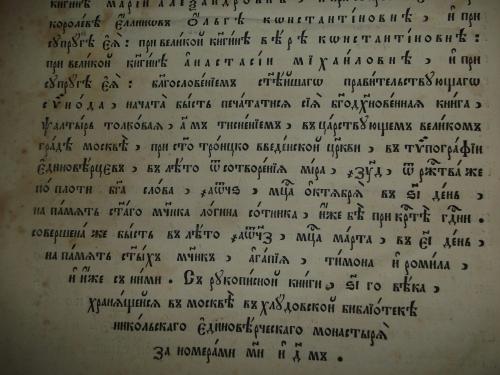 кнгинѣ марїи алеѯандровнѣ
королевѣ є҆ллиновъ ѻ҆льгѣ константїновнѣ , и҆ при
сꙋпрꙋгѣ є҆ѧ̀ : при великой кн҃гинѣ вѣрѣ константїновнѣ :
при великой кн҃гинѣ а҆настасїи мїхаиловнѣ , и҆ при
сꙋпрꙋгѣ є҆ѧ̀ : благословенїемъ ст҃ѣйшагѡ правительствꙋющагѡ
сѵ҆нода , начата бысть печататисѧ сїѧ̀ бг҃одх҃новеннаѧ книга ,
ѱалтырь толковаѧ , а҃мъ тисненїемъ , въ царствꙋющемъ великомъ
градѣ москвѣ , при ст҃о троицко введенской цр҃кви , въ тѵпографїи
є҆диновѣрцевъ , въ лѣто ѿ сотворенїѧ мїра , ҂зуд , ѿ рж҃тва же
по плоти бг҃а слова , ҂аѡч҃ѕ , мц҃а ѻ҆ктѧбрѧ въ ѕ҃і день ,
на памѧть ст҃агѡ мч҃нка логина сотника , и҆же бѣ при кр҃тѣ гд҃ни .
совершена же бысть въ лѣто ҂аѡч҃з , мц҃а марта , въ є҃і день ,
на памѧть ст҃ыхъ мч҃нкъ , а҆гапїѧ , тимона и҆ ромила ,
и҆ и҆же съ ними . Съ рꙋкописной книги , ѕ҃і го вѣка ,
хранѧщейсѧ въ москвѣ въ хлꙋдовской библїотекѣ
никольскаго є҆диновѣрческаго монастырѧ
за номерами м҃и и҆ д҃мъ .